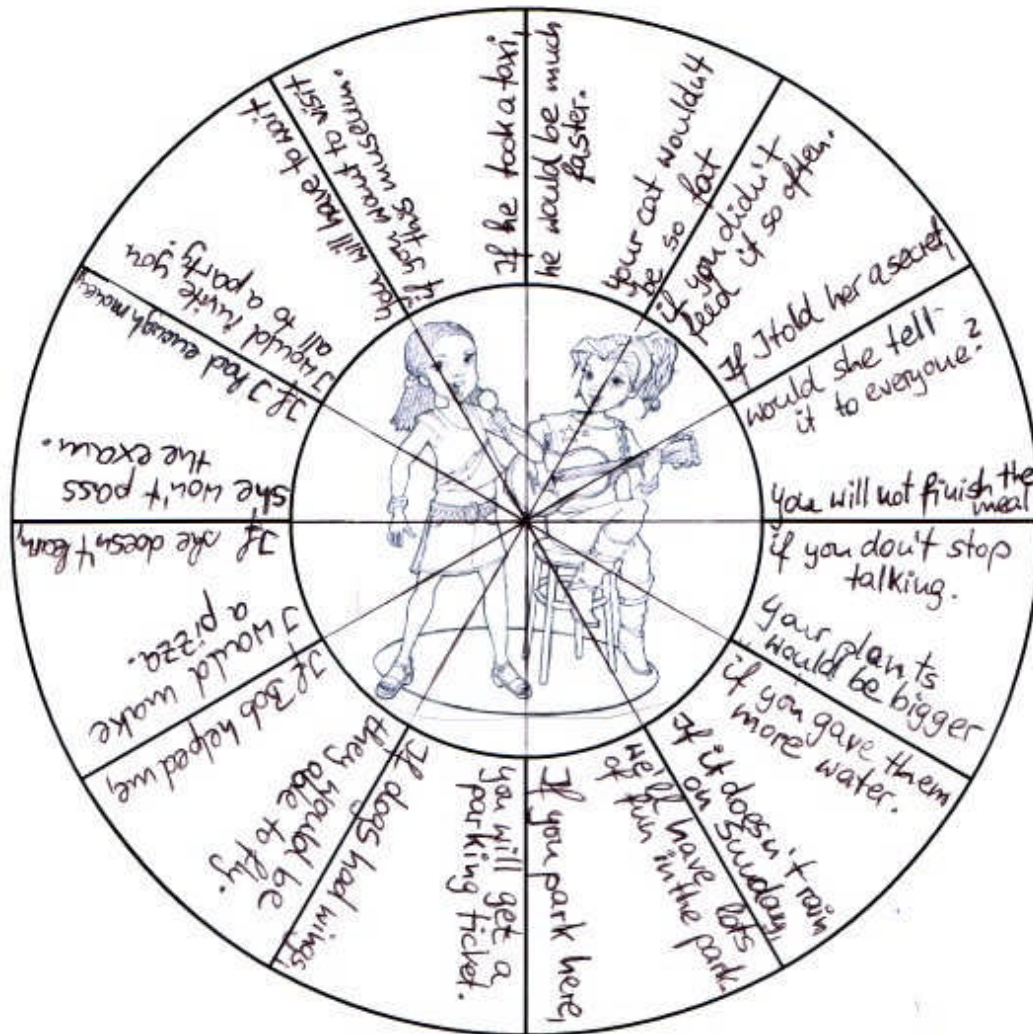 If he took a taxi,
he would be much
faster.
your cat wouldn't
be so fat
if you didn't
feed it so often.
If I told her a secret,
would she tell
it to everyone?
you will not finish the
meal
if you don't stop
talking.
your plants
would be bigger
if you gave them
more water.
If it doesn't rain
on Sunday,
we'll have lots
of fun in the park.
If you park here,
you will get a
parking ticket.
If dogs had wings,
they would be
able to fly.
If Bob helped me,
I would make
a pizza.
If she doesn't learn,
she won't pass
the exam.
If I had enough money
I would invite you
all to a party.
you will have to wait
if you want to visit
this museum.